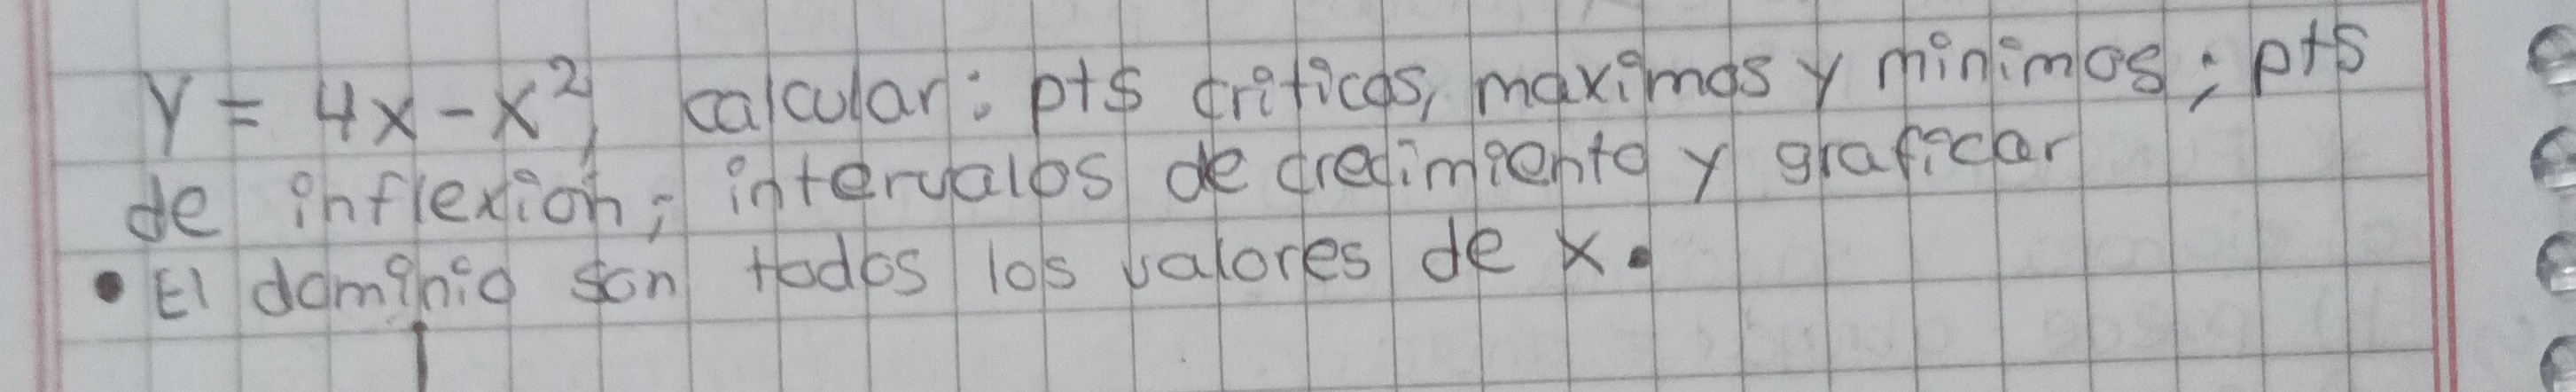 y = 4x - x², calcular: pts criticos, maximos y minimos; pts
de inflexion; intervalos de crecimiento y graficar
• El dominio son todos los valores de x.